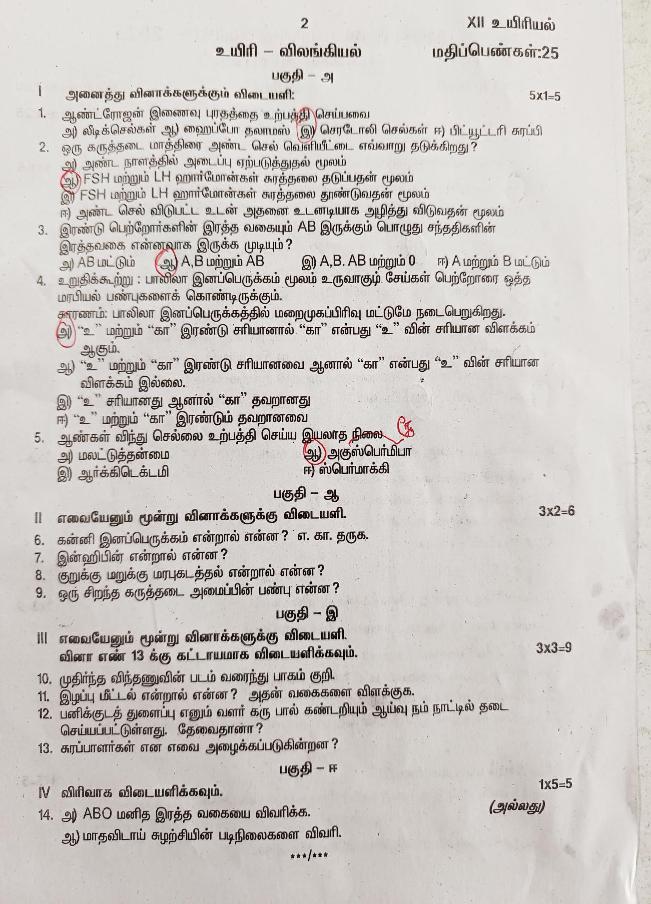 2 XII உயிரியல்
உயிரி – விலங்கியல் மதிப்பெண்கள்:25
பகுதி – அ
I அனைத்து வினாக்களுக்கும் விடையளி: 5x1=5
1. ஆண்ட்ரோஜன் இணைவு புரதத்தை உற்பத்தி செய்பவை
அ) லீடிக்செல்கள் ஆ) ஹைப்போ தலாமஸ் இ) செரடோலி செல்கள் ஈ) பிட்யூட்டரி சுரப்பி
2. ஒரு கருத்தடை மாத்திரை அண்ட செல் வெளியீட்டை எவ்வாறு தடுக்கிறது?
அ) அண்ட நாளத்தில் அடைப்பு ஏற்படுத்துதல் மூலம்
ஆ) FSH மற்றும் LH ஹார்மோன்கள் சுரத்தலை தடுப்பதன் மூலம்
இ) FSH மற்றும் LH ஹார்மோன்கள் சுரத்தலை தூண்டுவதன் மூலம்
ஈ) அண்ட செல் விடுபட்ட உடன் அதனை உடனடியாக அழித்து விடுவதன் மூலம்
3. இரண்டு பெற்றோர்களின் இரத்த வகையும் AB இருக்கும் பொழுது சந்ததிகளின்
இரத்தவகை என்னவாக இருக்க முடியும்?
அ) AB மட்டும் ஆ) A,B மற்றும் AB இ) A,B. AB மற்றும் 0 ஈ) A மற்றும் B மட்டும்
4. உறுதிக்கூற்று : பாலிலா இனப்பெருக்கம் மூலம் உருவாகும் சேய்கள் பெற்றோரை ஒத்த
மரபியல் பண்புகளைக் கொண்டிருக்கும்.
காரணம்: பாலிலா இனப்பெருக்கத்தில் மறைமுகப்பிரிவு மட்டுமே நடைபெறுகிறது.
அ) “உ” மற்றும் “கா” இரண்டு சரியானால் “கா” என்பது “உ” வின் சரியான விளக்கம்
ஆகும்.
ஆ) “உ” மற்றும் “கா” இரண்டு சரியானவை ஆனால் “கா” என்பது “உ” வின் சரியான
விளக்கம் இல்லை.
இ) “உ” சரியானது ஆனால் “கா” தவறானது
ஈ) “உ” மற்றும் “கா” இரண்டும் தவறானவை
5. ஆண்கள் விந்து செல்லை உற்பத்தி செய்ய இயலாத நிலை
அ) மலட்டுத்தன்மை ஆ) அகுஸ்பெர்மியா
இ) ஆர்க்கிடெக்டமி ஈ) ஸ்பெர்மாக்கி
பகுதி – ஆ
II எவையேனும் மூன்று வினாக்களுக்கு விடையளி. 3x2=6
6. கன்னி இனப்பெருக்கம் என்றால் என்ன? எ. கா. தருக.
7. இன்ஹிபின் என்றால் என்ன?
8. குறுக்கு மறுக்கு மரபுகடத்தல் என்றால் என்ன?
9. ஒரு சிறந்த கருத்தடை அமைப்பின் பண்பு என்ன?
பகுதி – இ
III எவையேனும் மூன்று வினாக்களுக்கு விடையளி.
வினா எண் 13 க்கு கட்டாயமாக விடையளிக்கவும். 3x3=9
10. முதிர்ந்த விந்தணுவின் படம் வரைந்து பாகம் குறி.
11. இழப்பு மீட்டல் என்றால் என்ன? அதன் வகைகளை விளக்குக.
12. பனிக்குடத் துளைப்பு எனும் வளர் கரு பால் கண்டறியும் ஆய்வு நம் நாட்டில் தடை
செய்யப்பட்டுள்ளது. தேவைதானா?
13. சுரப்பாளர்கள் என எவை அழைக்கப்படுகின்றன?
பகுதி – ஈ
IV விரிவாக விடையளிக்கவும். 1x5=5
14. அ) ABO மனித இரத்த வகையை விவரிக்க. (அல்லது)
ஆ) மாதவிடாய் சுழற்சியின் படிநிலைகளை விவரி.
***/***